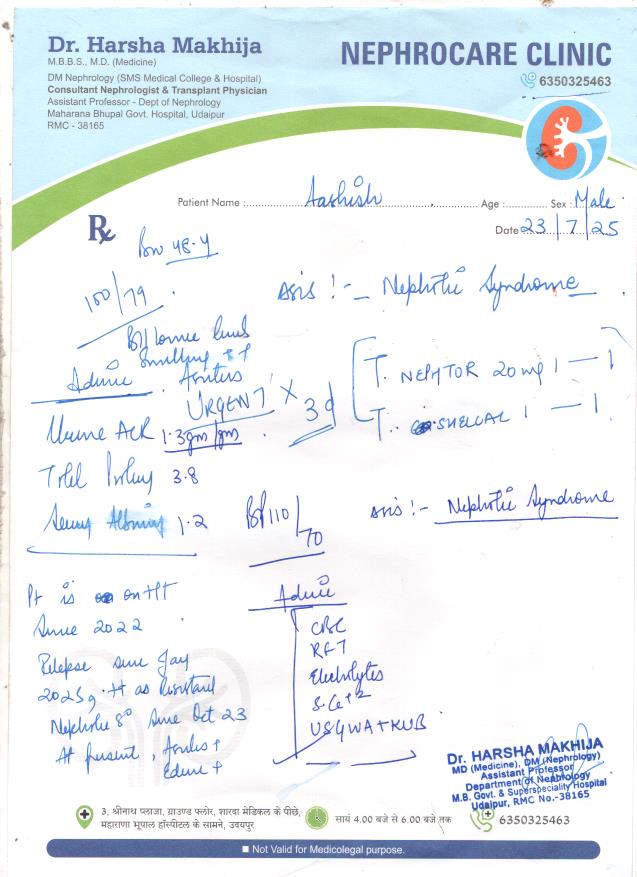 Dr. Harsha Makhija
M.B.B.S., M.D. (Medicine)
DM Nephrology (SMS Medical College & Hospital)
Consultant Nephrologist & Transplant Physician
Assistant Professor - Dept of Nephrology
Maharana Bhupal Govt. Hospital, Udaipur
RMC - 38165
NEPHROCARE CLINIC
6350325463
Patient Name : Aashish Age : Sex : Male
Date 23/7/25
Rx
100/79
Δsis :- Nephrotic Syndrome
B/L lower limb
Swelling ++
Advice Ascites
URGENT X 3d
Urine ACR 1.3gm/gm
Total Protein 3.8
Serum Albumin 1.2
T. NEPHTOR 20 mg 1 — 1
T. SHELCAL 1 — 1
BP 110/70
Δsis :- Nephrotic Syndrome
Pt is on ttt
Since 2022
Relapse since Jay
2025, ttt as Resistant
Nephrotic since Oct 23
At present, Ascites +
Edema +
Advice
CBC
RFT
Electrolytes
S. Ca+2
USG WA + KUB
Dr. HARSHA MAKHIJA
MD (Medicine), DM (Nephrology)
Assistant Professor
Department of Nephrology
M.B. Govt. & Superspeciality Hospital
Udaipur, RMC No.-38165
3, श्रीनाथ प्लाजा, ग्राउण्ड फ्लोर, शारदा मेडिकल के पीछे,
महाराणा भूपाल हॉस्पीटल के सामने, उदयपुर
सायं 4.00 बजे से 6.00 बजे तक
6350325463
Not Valid for Medicolegal purpose.